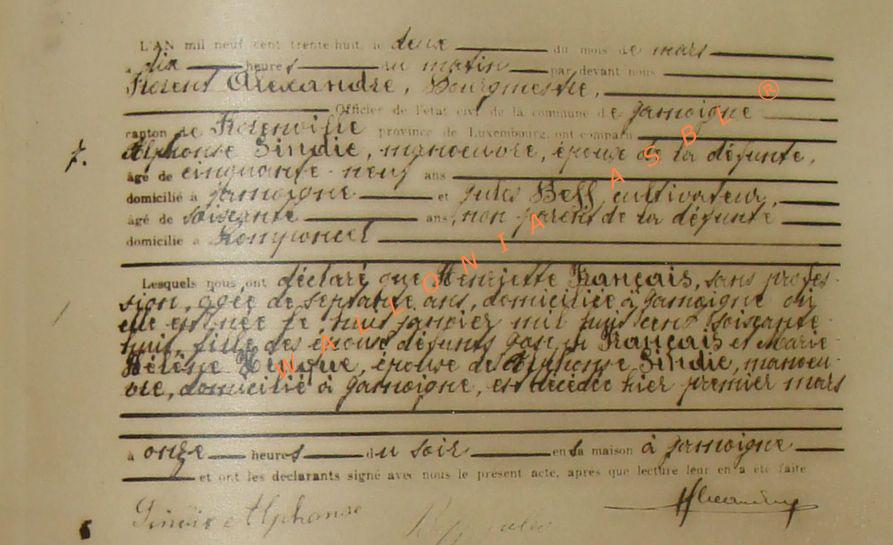 L'AN mil neuf cent trente-huit, le deux du mois de mars
à dix heures du matin par devant nous
Florent Alexandre, Bourgmestre,
Officier de l'état civil de la commune de Jamoigne
canton de Florenville province de Luxembourg, ont comparu
7. Alphonse Sindic, manoeuvre, époux de la défunte,
âgé de cinquante-neuf ans
domicilié à Jamoigne et Jules Beff, cultivateur,
âgé de soixante ans, non parent de la défunte
domicilié à Romponcel
Lesquels nous ont déclaré que Henriette Français, sans profes-
sion, agée de septante ans, domiciliée à Jamoigne où
elle est née le huit janvier mil huit cent soixante-
huit, fille des époux défunts Français et Marie
Hélène, épouse de Alphonse Sindic, manoeu-
vre, domicilié à Jamoigne, est décédée hier premier mars
à onze heures du soir en sa maison à Jamoigne
et ont les déclarants signé avec nous le présent acte, après que lecture leur en a été faite
Alphonse
WALLONIA ASBL ®